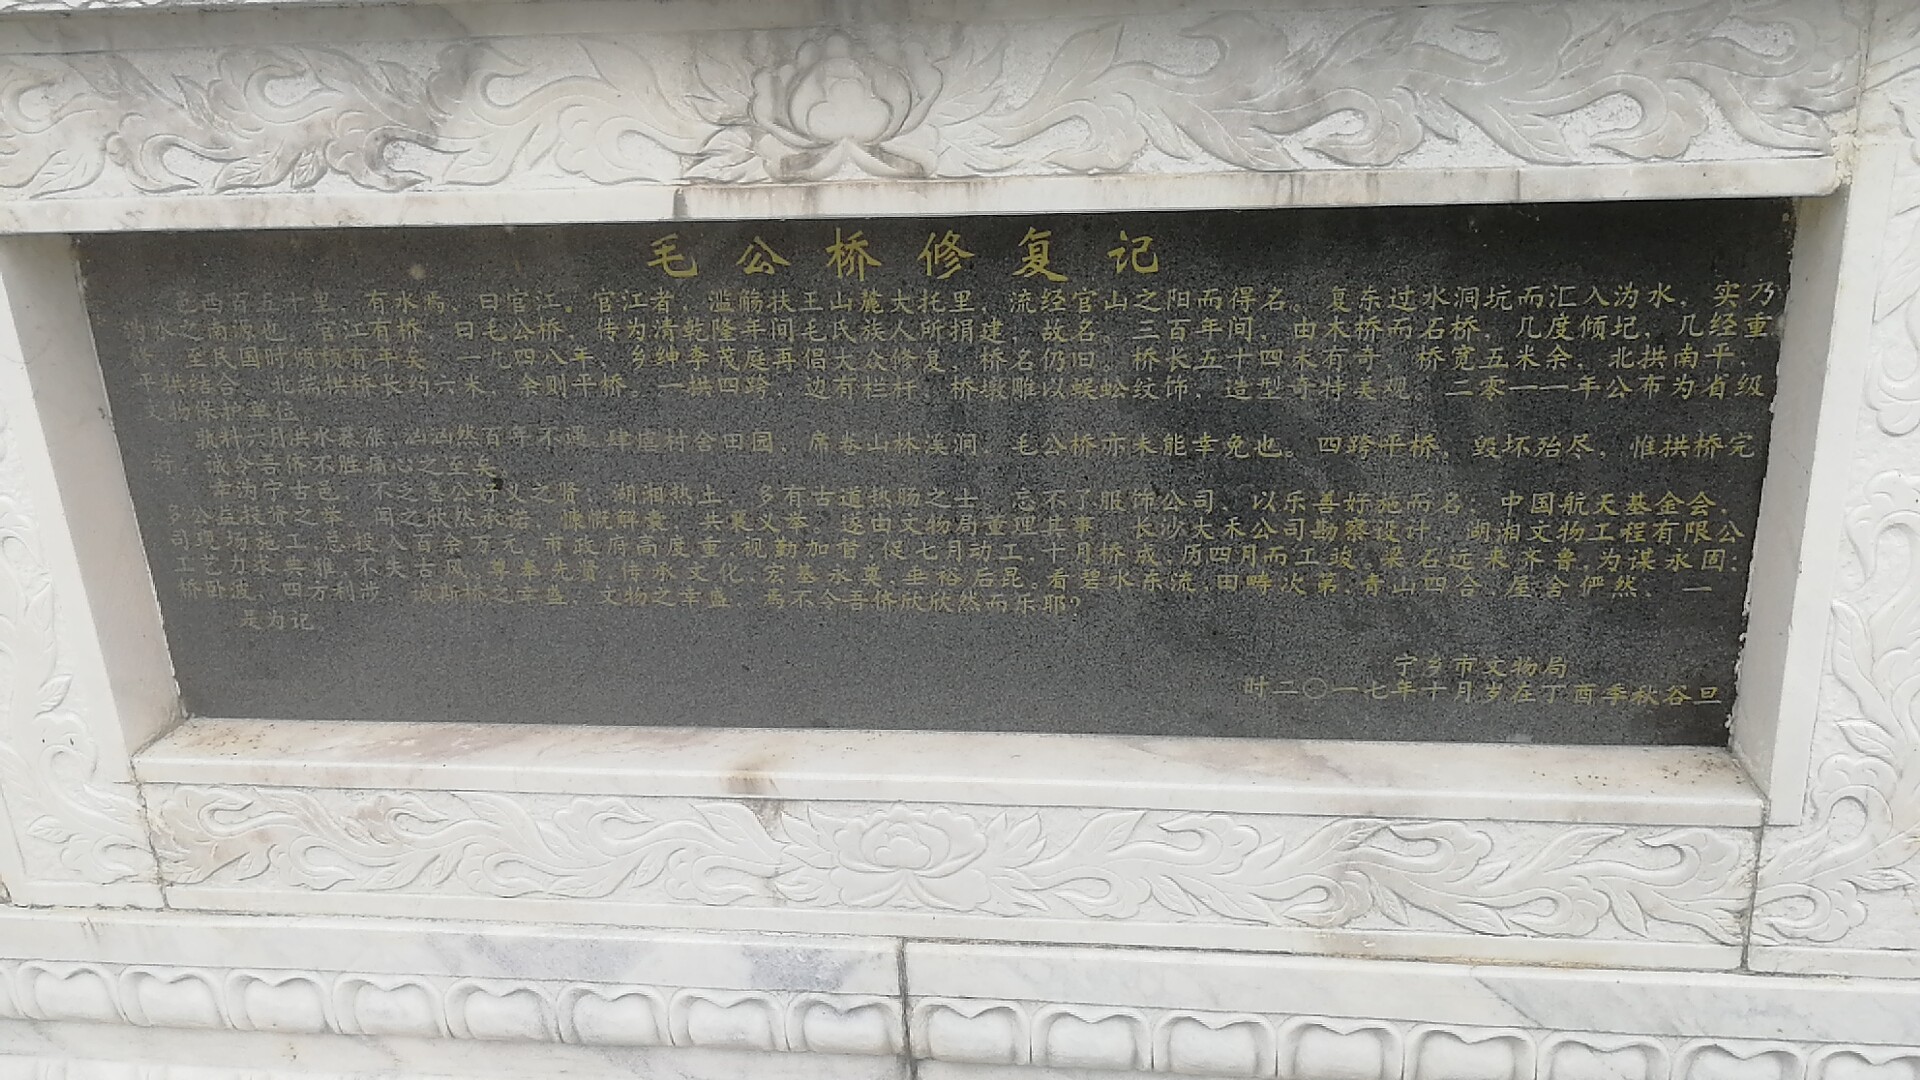 毛公桥修复记
邑西百五十里，有水焉，曰官江。官江者，滥觞扶王山麓大托里，流经官山之阳而得名。复东过水洞坑而汇入沩水，实乃
沩水之南源也。官江有桥，曰毛公桥，传为清乾隆年间毛氏族人所捐建，故名。三百年间，由木桥而石桥，几度倾圮，几经重
修，至民国时倾颓有年矣。一九四八年，乡绅李茂庭再倡大众修复，桥名仍旧。桥长五十四米有奇，桥宽五米余，北拱南平，
平拱结合，北端拱桥长约六米，余则平桥。一拱四跨，边有栏杆，桥墩雕以蜈蚣纹饰，造型奇特美观。二零一一年公布为省级
文物保护单位。
孰料六月洪水暴涨，汹汹然百年不遇。肆虐村舍田园，席卷山林溪涧，毛公桥亦未能幸免也。四跨平桥，毁坏殆尽，惟拱桥完
好，诚令吾侪不胜痛心之至矣。
幸为宁古邑，不乏急公好义之贤，湖湘热土，多有古道热肠之士。忘不了服饰公司，以乐善好施而名；中国航天基金会，
多公益投资之举，闻之欣然承诺，慷慨解囊，共襄义举。遂由文物局董理其事，长沙大禾公司勘察设计，湖湘文物工程有限公
司现场施工，总投入百余万元。市政府高度重视，勤加督促，七月动工，十月桥成，历四月而工竣。梁石远来齐鲁，为谋永固；
工艺力求典雅，不失古风。尊奉先贤，传承文化，宏基永奠，垂裕后昆。看碧水东流，田畴次第，青山四合，屋舍俨然，一
桥卧波，四方利涉，诚斯桥之幸盛，文物之幸盛，焉不令吾侪欣欣然而乐耶？
是为记
宁乡市文物局
时二〇一七年十月岁在丁酉季秋谷旦